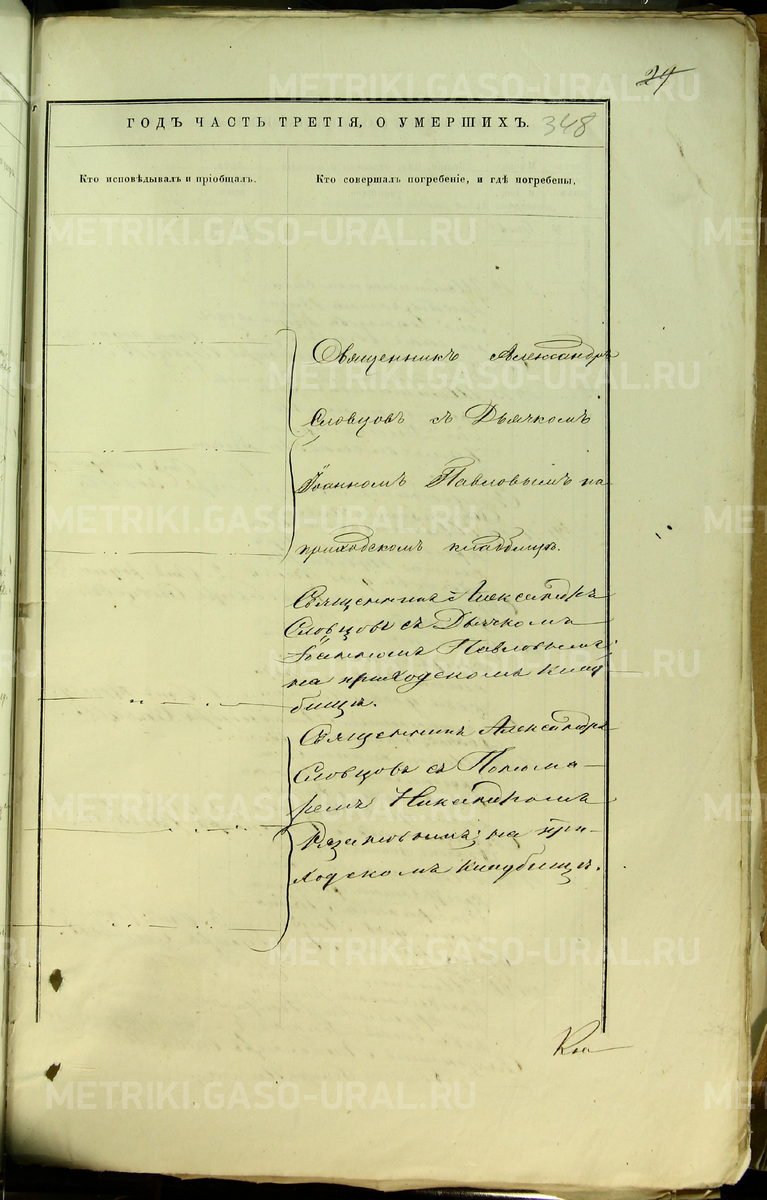 24
ГОДЪ ЧАСТЬ ТРЕТІЯ, О УМЕРШИХЪ. 348
Кто исповѣдывалъ и пріобщалъ.
Кто совершалъ погребеніе, и гдѣ погребены.
Священникъ Александръ
Словцовъ съ Дьячкомъ
Іоанномъ Павловымъ на
приходскомъ кладбищѣ.
Священникъ Александръ
Словцовъ съ Дьячкомъ
Іоанномъ Павловымъ;
на приходскомъ клад
бищѣ.
Священникъ Александръ
Словцовъ съ Понома-
ремъ Никандромъ
на при-
ходскомъ кладбищѣ.
METRIKI.GASO-URAL.RU